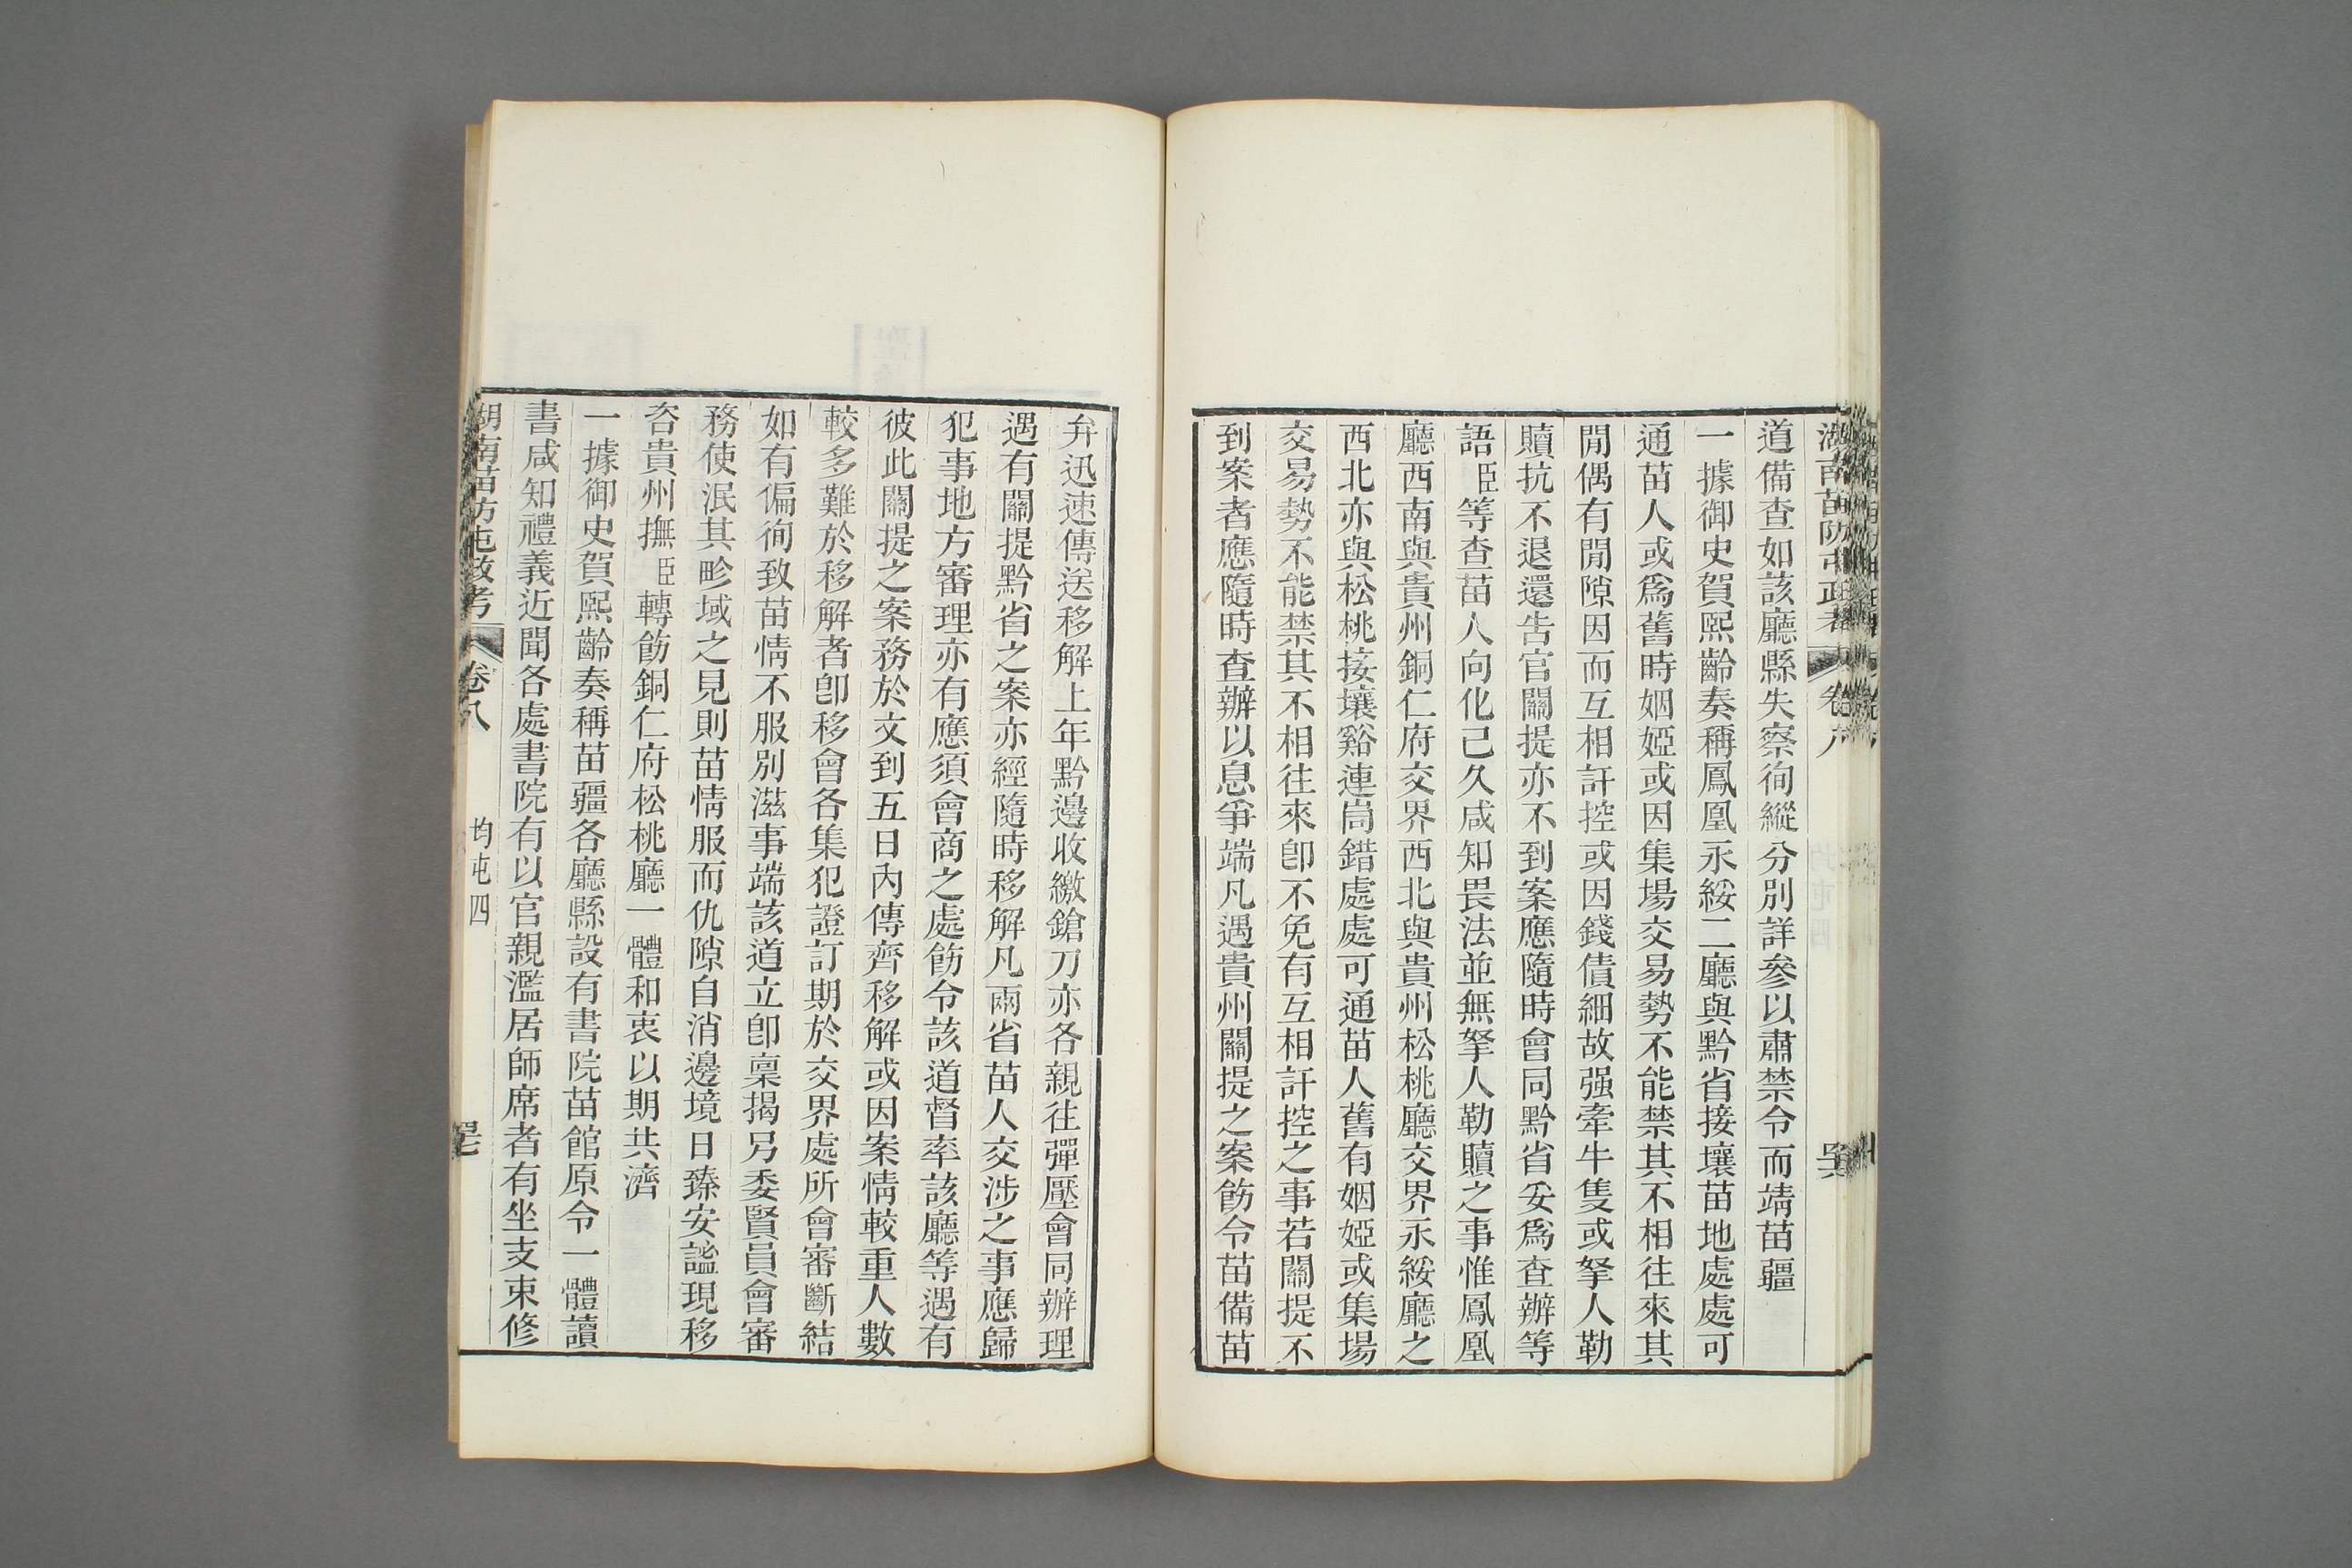 湖南苗防屯政考 卷八
道備查如該廳縣失察徇縱分別詳參以肅禁令而靖苗疆
一據御史賀熙齡奏稱鳳凰永綏二廳與黔省接壤苗地處處可
通苗人或爲舊時姻婭或因集場交易勢不能禁其不相往來其
閒偶有閒隙因而互相訐控或因錢債細故强牽牛隻或拏人勒
贖抗不退還告官關提亦不到案應隨時會同黔省妥爲查辦等
語臣等查苗人向化已久咸知畏法並無拏人勒贖之事惟鳳凰
廳西南與貴州銅仁府交界西北與貴州松桃廳交界永綏廳之
西北亦與松桃接壤谿連峝錯處處可通苗人舊有姻婭或集場
交易勢不能禁其不相往來卽不免有互相訐控之事若關提不
到案者應隨時查辦以息爭端凡遇貴州關提之案飭令苗備苗
弁迅速傳送移解上年黔邊收繳鎗刀亦各親往彈壓會同辦理
遇有關提黔省之案亦經隨時移解凡兩省苗人交涉之事應歸
犯事地方審理亦有應須會商之處飭令該道督率該廳等遇有
彼此關提之案務於文到五日內傳齊移解或因案情較重人數
較多難於移解者卽移會各集犯證訂期於交界處所會審斷結
如有偏徇致苗情不服別滋事端該道立卽稟揭另委賢員會審
務使泯其畛域之見則苗情服而仇隙自消邊境日臻安謐現移
咨貴州撫臣轉飭銅仁府松桃廳一體和衷以期共濟
一據御史賀熙齡奏稱苗疆各廳縣設有書院苗館原令一體讀
書咸知禮義近聞各處書院有以官親濫居師席者有坐支束修
湖南苗防屯政考 卷八 均屯四